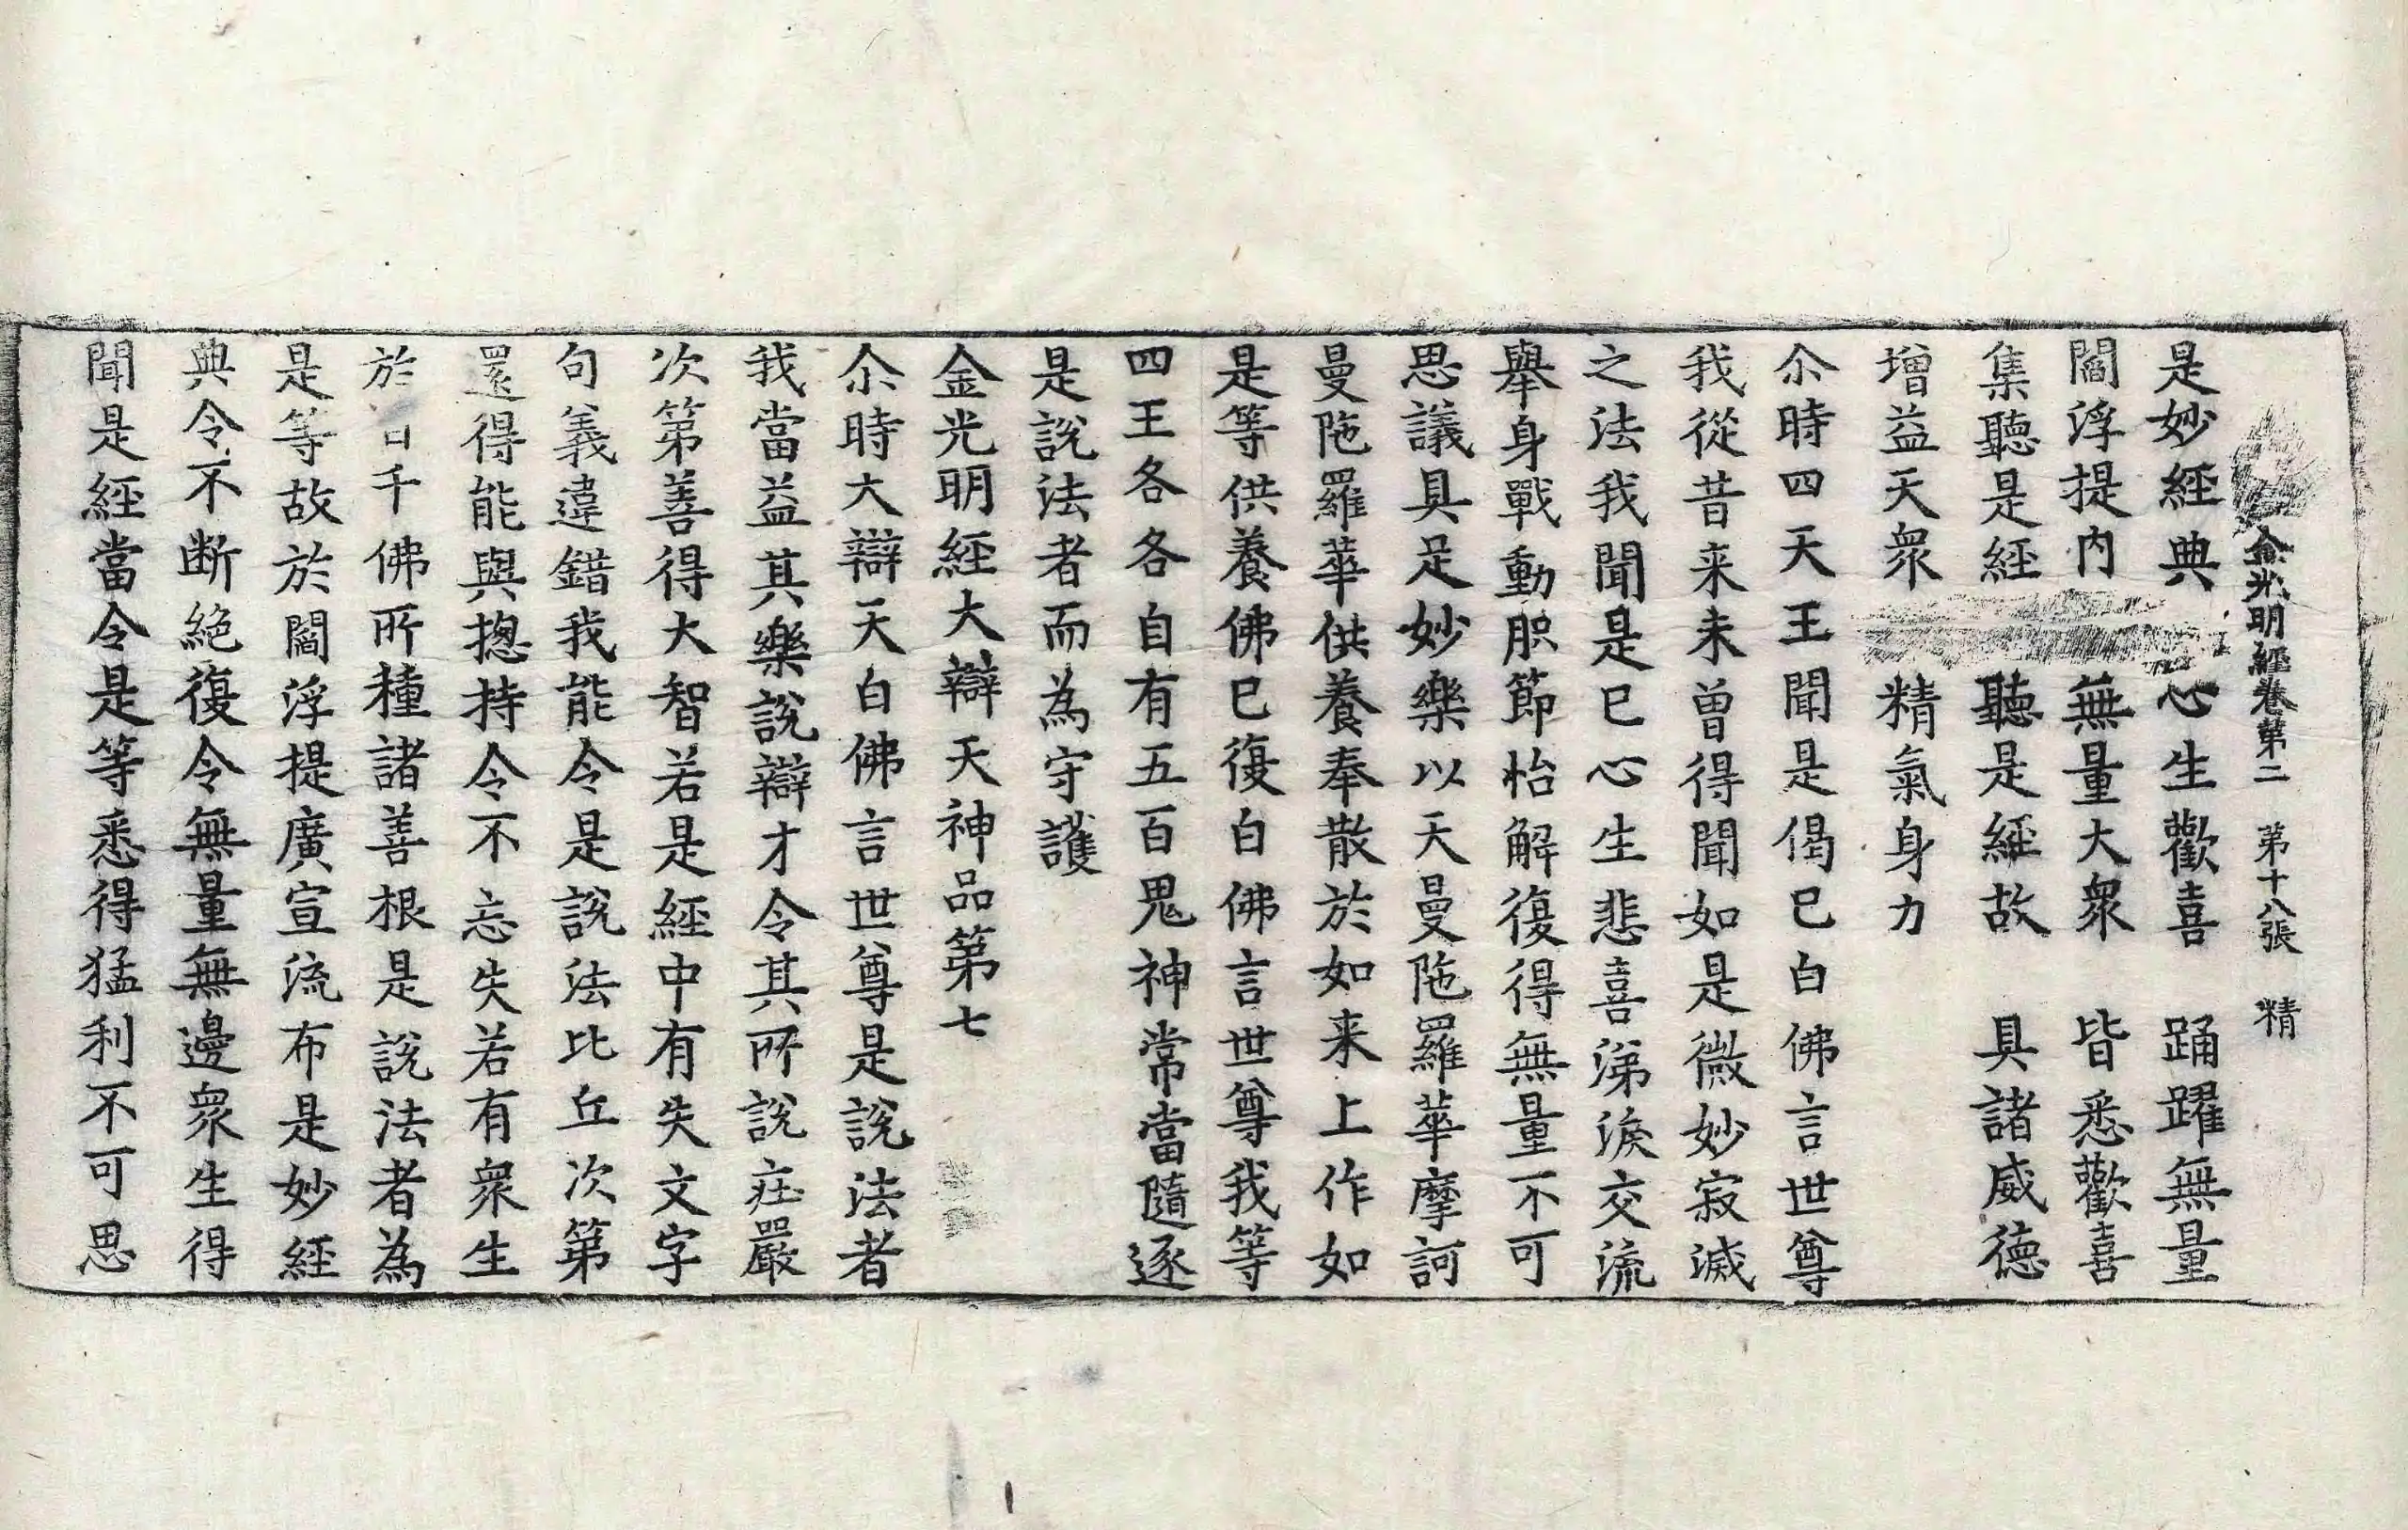 金光明經卷第二　第十八張　精
是妙經典　心生歡喜　踊躍無量
閻浮提内　無量大衆　皆悉歡喜
集聽是經　聽是經故　具諸威德
增益天衆　精氣身力
尒時四天王聞是偈已白佛言世尊
我從昔来未曾得聞如是微妙寂滅
之法我聞是已心生悲喜涕淚交流
舉身戰動肢節怡解復得無量不可
思議具足妙樂以天曼陁羅華摩訶
曼陁羅華供養奉散於如来上作如
是等供養佛已復白佛言世尊我等
四王各各自有五百鬼神常當隨逐
是說法者而為守護
金光明經大辯天神品第七
尒時大辯天白佛言世尊是說法者
我當益其樂說辯才令其所說莊嚴
次第善得大智若是經中有失文字
句義違錯我能令是說法比丘次第
還得能與摠持令不忘失若有衆生
於百千佛所種諸善根是說法者為
是等故於閻浮提廣宣流布是妙經
典令不断絶復令無量無邊衆生得
聞是經當令是等悉得猛利不可思